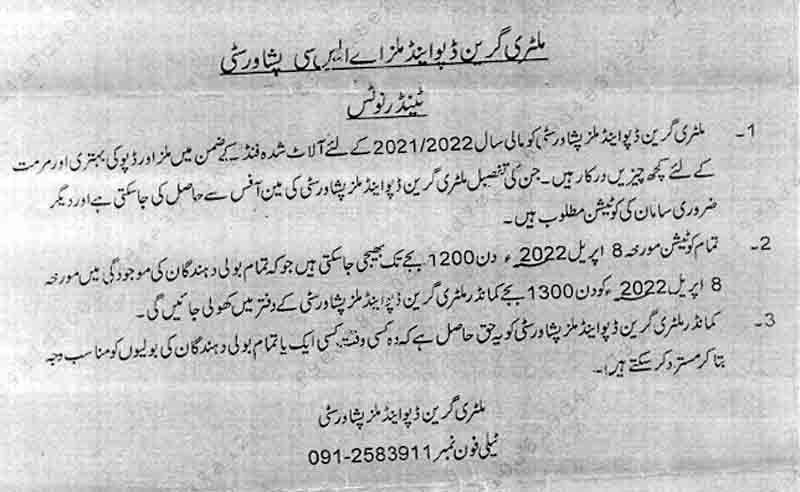 ملٹری گرین ڈپو اینڈ ملز اے ایس سی پشاور سٹی
ٹینڈر نوٹس
1- ملٹری گرین ڈپو اینڈ ملز پشاور سٹی کو مالی سال 2021/2022 کے لئے آلاٹ شدہ فنڈ کے ضمن میں ملز اور ڈپو کی بہتری اور مرمت
کے لئے کچھ چیزیں درکار ہیں۔ جن کی تفصیل ملٹری گرین ڈپو اینڈ ملز پشاور سٹی کی مین آفس سے حاصل کی جاسکتی ہے اور دیگر
ضروری سامان کی کوٹیشن مطلوب ہیں۔
2- تمام کوٹیشن مورخہ 8 اپریل 2022ء دن 1200 بجے تک بھیجی جاسکتی ہیں جو کہ تمام بولی دہندگان کی موجودگی میں مورخہ
8 اپریل 2022ء کو دن 1300 بجے کمانڈر ملٹری گرین ڈپو اینڈ ملز پشاور سٹی کے دفتر میں کھولی جائیں گی۔
3- کمانڈر ملٹری گرین ڈپو اینڈ ملز پشاور سٹی کو یہ حق حاصل ہے کہ وہ کسی وقت، کسی ایک یا تمام بولی دہندگان کی بولیوں کو مناسب وجہ
بتا کر مسترد کر سکتے ہیں۔
ملٹری گرین ڈپو اینڈ ملز پشاور سٹی
ٹیلی فون نمبر 091-2583911